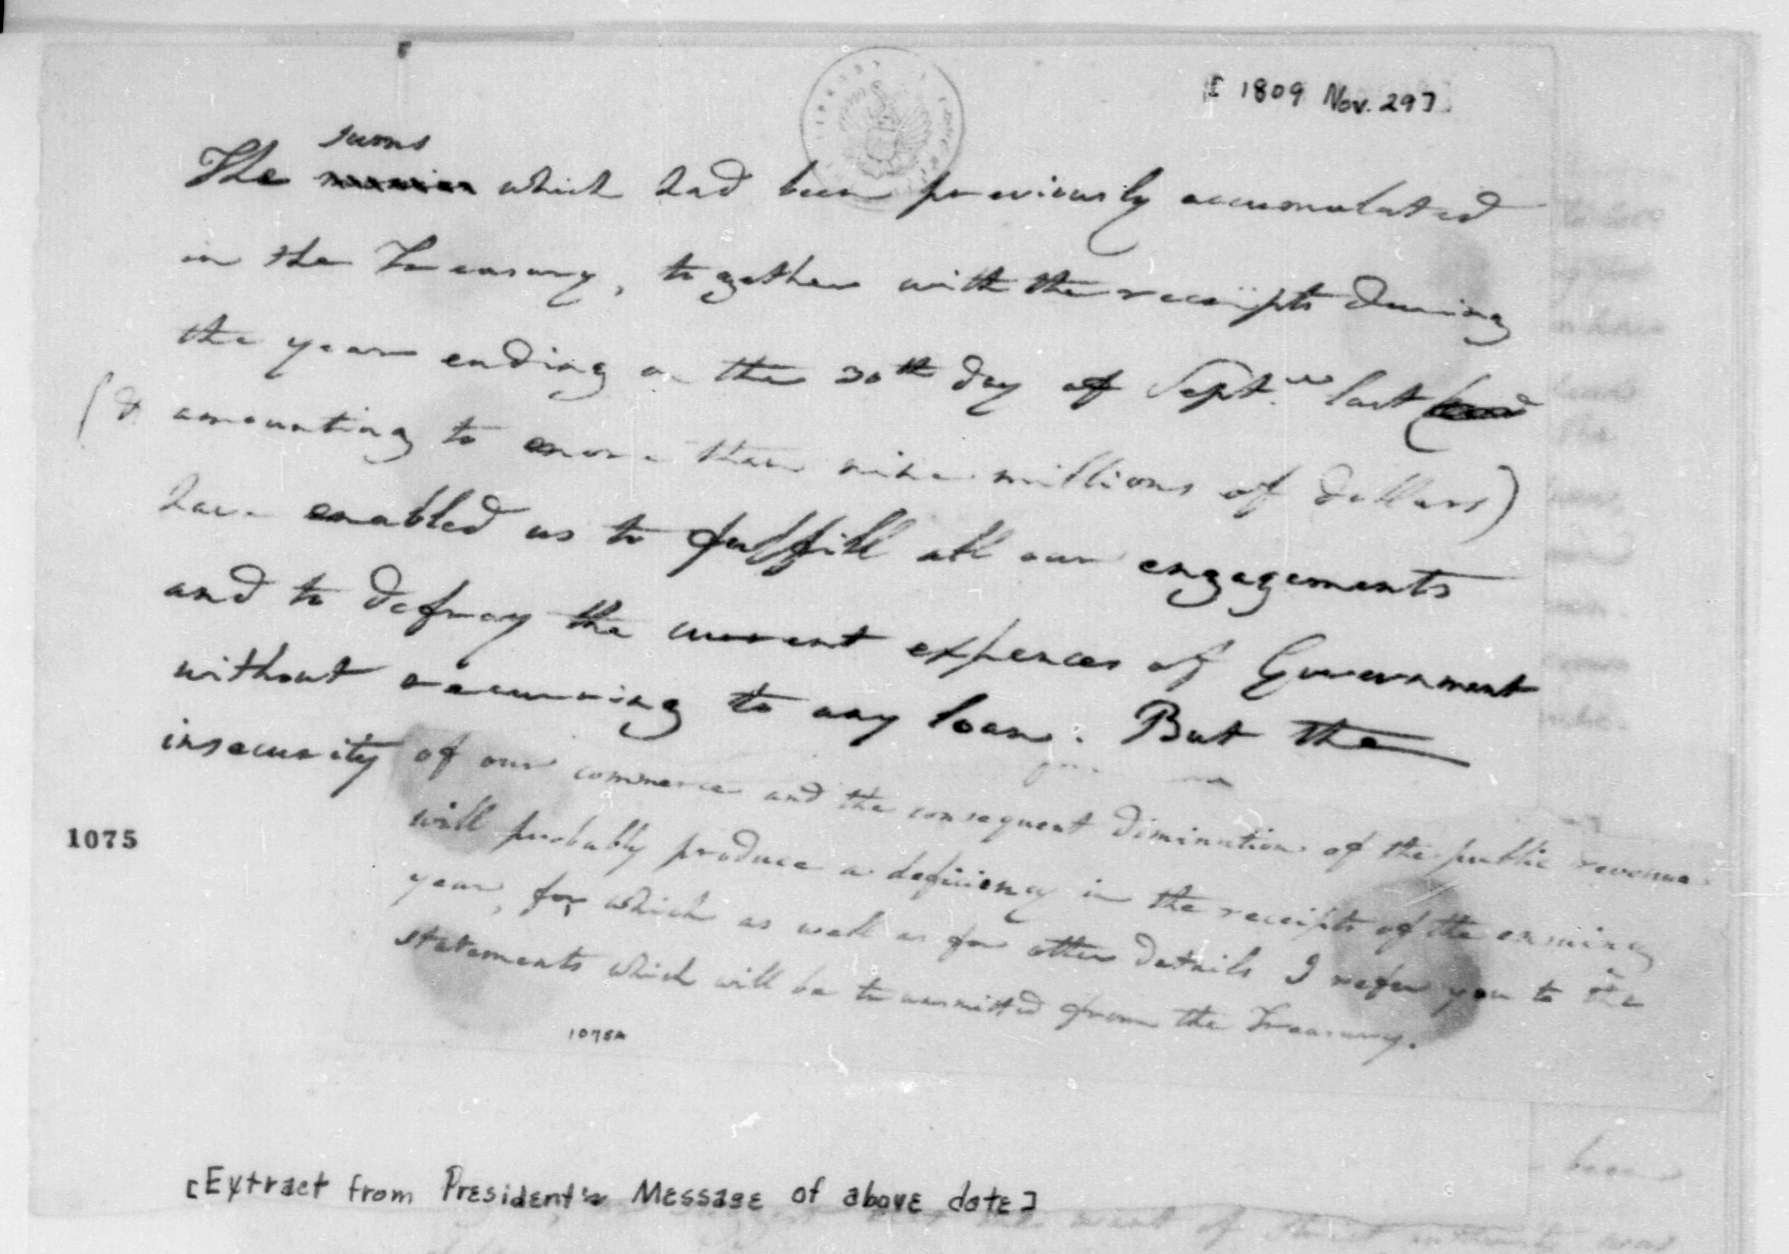 [1809 Nov. 29]
sums
The which had been previously accumulated
in the Treasury, together with the receipts during
the year ending on the 30th day of Septr. last
(& amounting to more than nine millions of dollars)
have enabled us to fulfill all our engagements
and to defray the current expences of Government
without recurring to any loan. But the
insecurity of our commerce and the consequent diminution of the public revenue
will probably produce a deficiency in the receipts of the ensuing
year, for which as well as for other details I refer you to the
statements which will be transmitted from the Treasury.
1075
1075A
[Extract from President's Message of above date]